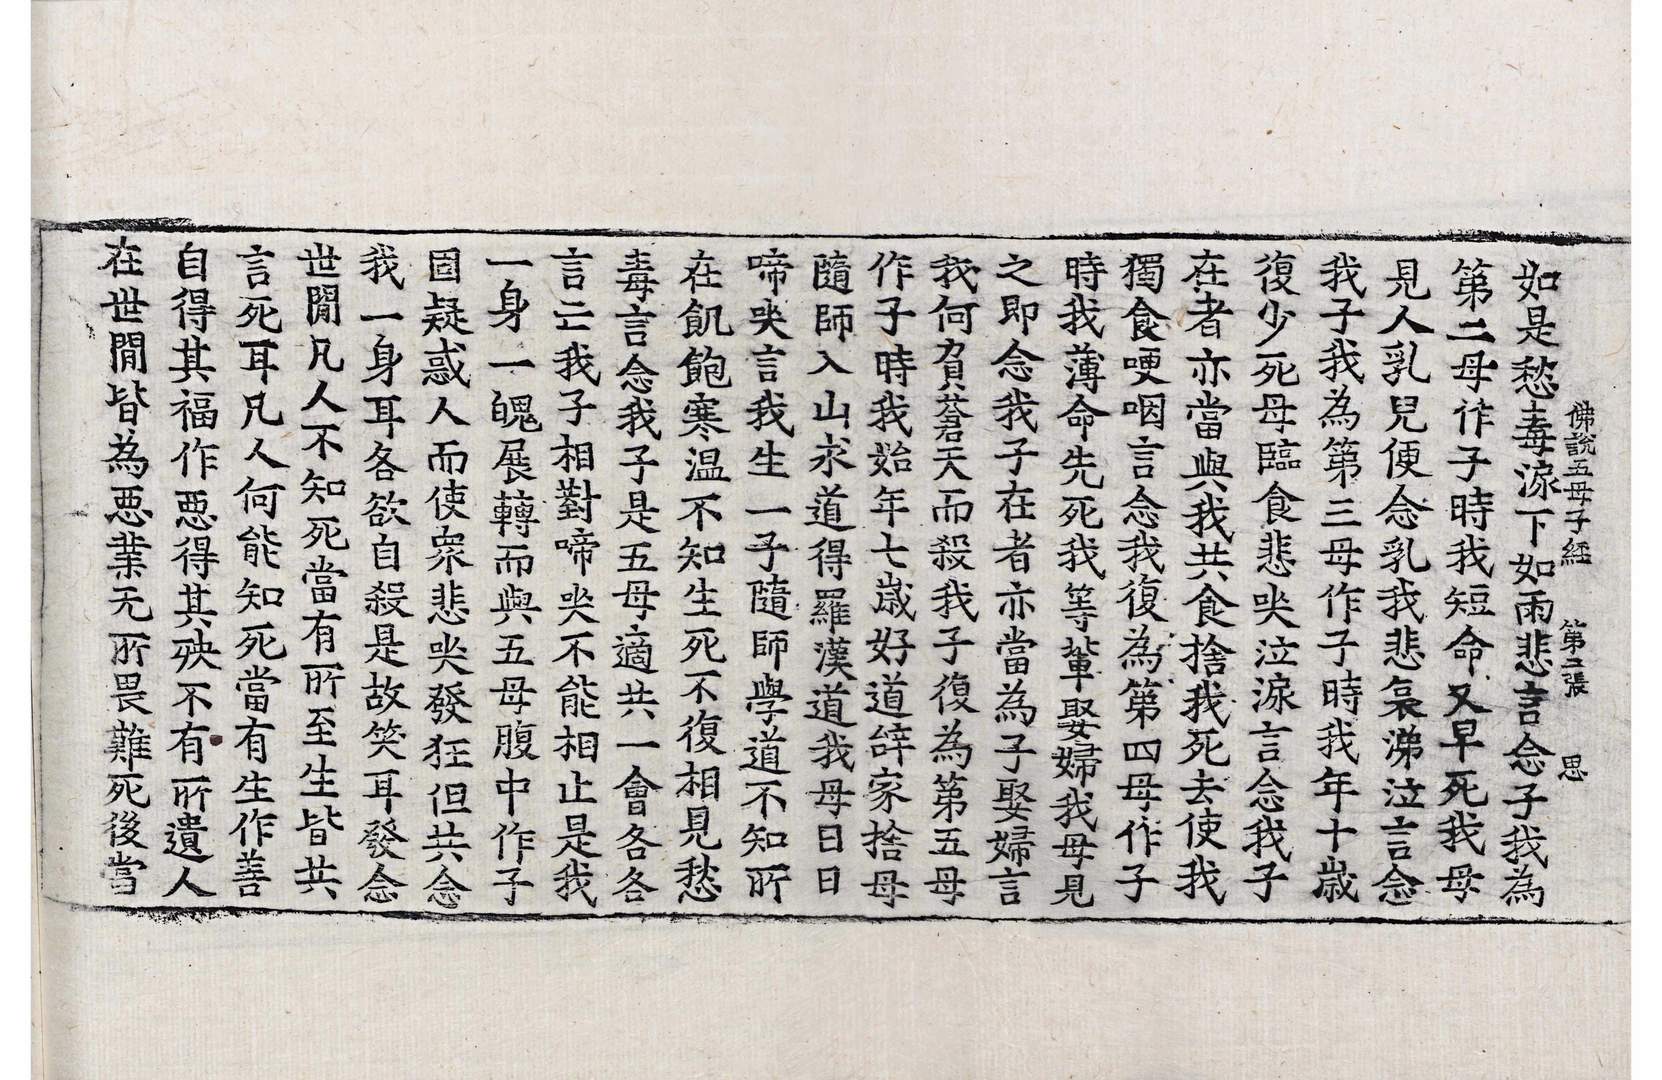 佛說五母子經 第二張 思
如是愁毒淚下如雨悲言念子我為
第二母作子時我短命又早死我母
見人乳兒便念乳我悲哀涕泣言念
我子我為第三母作子時我年十歲
復少死母臨食悲哭泣淚言念我子
在者亦當與我共食捨我死去使我
獨食哽咽言念我復為第四母作子
時我薄命先死我等輩娶婦我母見
之即念我子在者亦當為子娶婦言
我何負蒼天而殺我子復為第五母
作子時我始年七歲好道辝家捨母
隨師入山求道得羅漢道我母日日
啼哭言我生一子隨師學道不知所
在飢飽寒温不知生死不復相見愁
毒言念我子是五母適共一會各各
言亡我子相對啼哭不能相止是我
一身一魄展轉而與五母腹中作子
固疑惑人而使衆悲哭發狂但共念
我一身耳各欲自殺是故笑耳發念
世閒凡人不知死當有所至生皆共
言死耳凡人何能知死當有生作善
自得其福作惡得其殃不有所遺人
在世閒皆為惡業无所畏難死後當